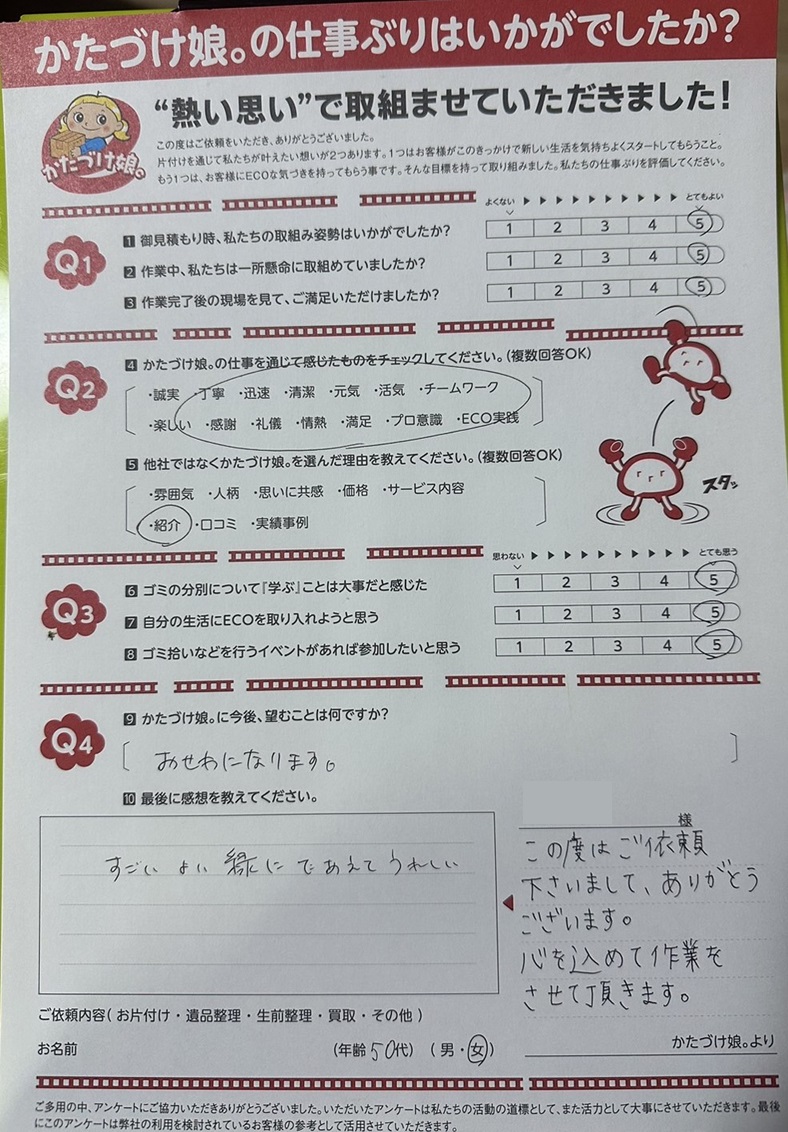 かたづけ娘。の仕事ぶりはいかがでしたか?
“熱い思い”で取組ませていただきました!
かたづけ娘。
この度はご依頼をいただき、ありがとうございました。
片付けを通じて私たちが叶えたい想いが2つあります。1つはお客様がこのきっかけで新しい生活を気持ちよくスタートしてもらうこと。
もう1つは、お客様にECOな気づきを持ってもらう事です。そんな目標を持って取り組みました。私たちの仕事ぶりを評価してください。
よくない ▶ ▶ ▶ ▶ ▶ ▶ ▶ ▶ ▶ ▶ とてもよい
Q1
1 御見積もり時、私たちの取組み姿勢はいかがでしたか? 1 2 3 4 5
2 作業中、私たちは一所懸命に取組めていましたか? 1 2 3 4 5
3 作業完了後の現場を見て、ご満足いただけましたか? 1 2 3 4 5
Q2
4 かたづけ娘。の仕事を通じて感じたものをチェックしてください。(複数回答OK)
・誠実 ・丁寧 ・迅速 ・清潔 ・元気 ・活気 ・チームワーク
・楽しい ・感謝 ・礼儀 ・情熱 ・満足 ・プロ意識 ・ECO実践
5 他社ではなくかたづけ娘。を選んだ理由を教えてください。(複数回答OK)
・雰囲気 ・人柄 ・思いに共感 ・価格 ・サービス内容
・紹介 ・口コミ ・実績事例
スタッ
思わない ▶ ▶ ▶ ▶ ▶ ▶ ▶ ▶ ▶ ▶ とても思う
Q3
6 ゴミの分別について『学ぶ』ことは大事だと感じた 1 2 3 4 5
7 自分の生活にECOを取り入れようと思う 1 2 3 4 5
8 ゴミ拾いなどを行うイベントがあれば参加したいと思う 1 2 3 4 5
Q4
9 かたづけ娘。に今後、望むことは何ですか?
おせわになります。
10 最後に感想を教えてください。
すごい よい 縁に であえて うれしい
様
この度はご依頼
下さいまして、ありがとう
ございます。
心を込めて作業を
させて頂きます。
かたづけ娘。より
ご依頼内容( お片付け・遺品整理・生前整理・買取・その他 )
お名前 (年齢 50代) ( 男・女)
ご多用の中、アンケートにご協力いただきありがとうございました。いただいたアンケートは私たちの活動の道標として、また活力として大事にさせていただきます。最後
にこのアンケートは弊社の利用を検討されているお客様の参考として活用させていただきます。